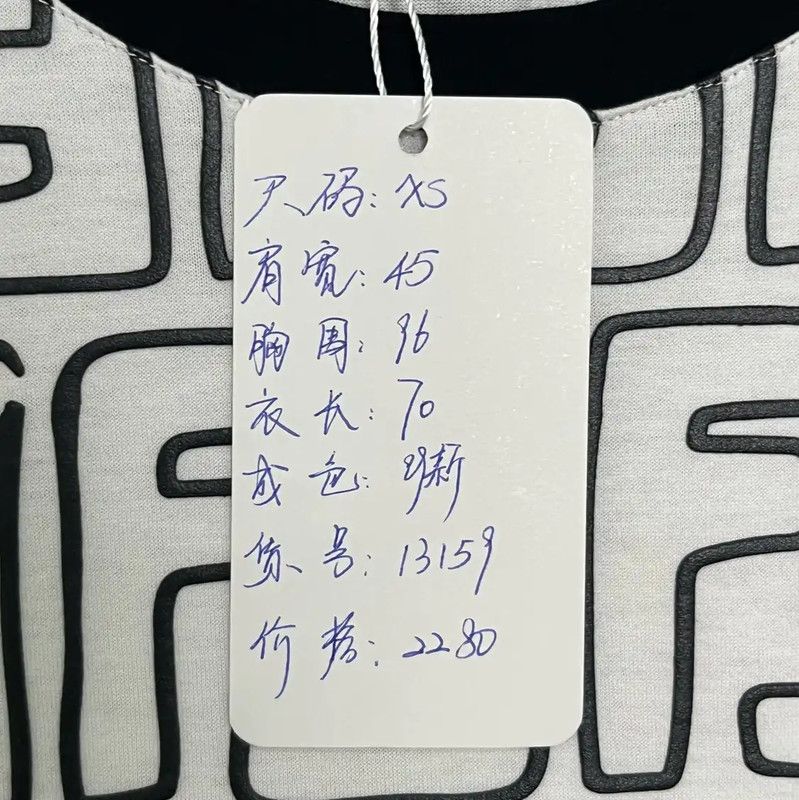 尺码: XS
肩宽: 45
胸围: 96
衣长: 70
成色: 99新
货号: 13159
价格: 2280